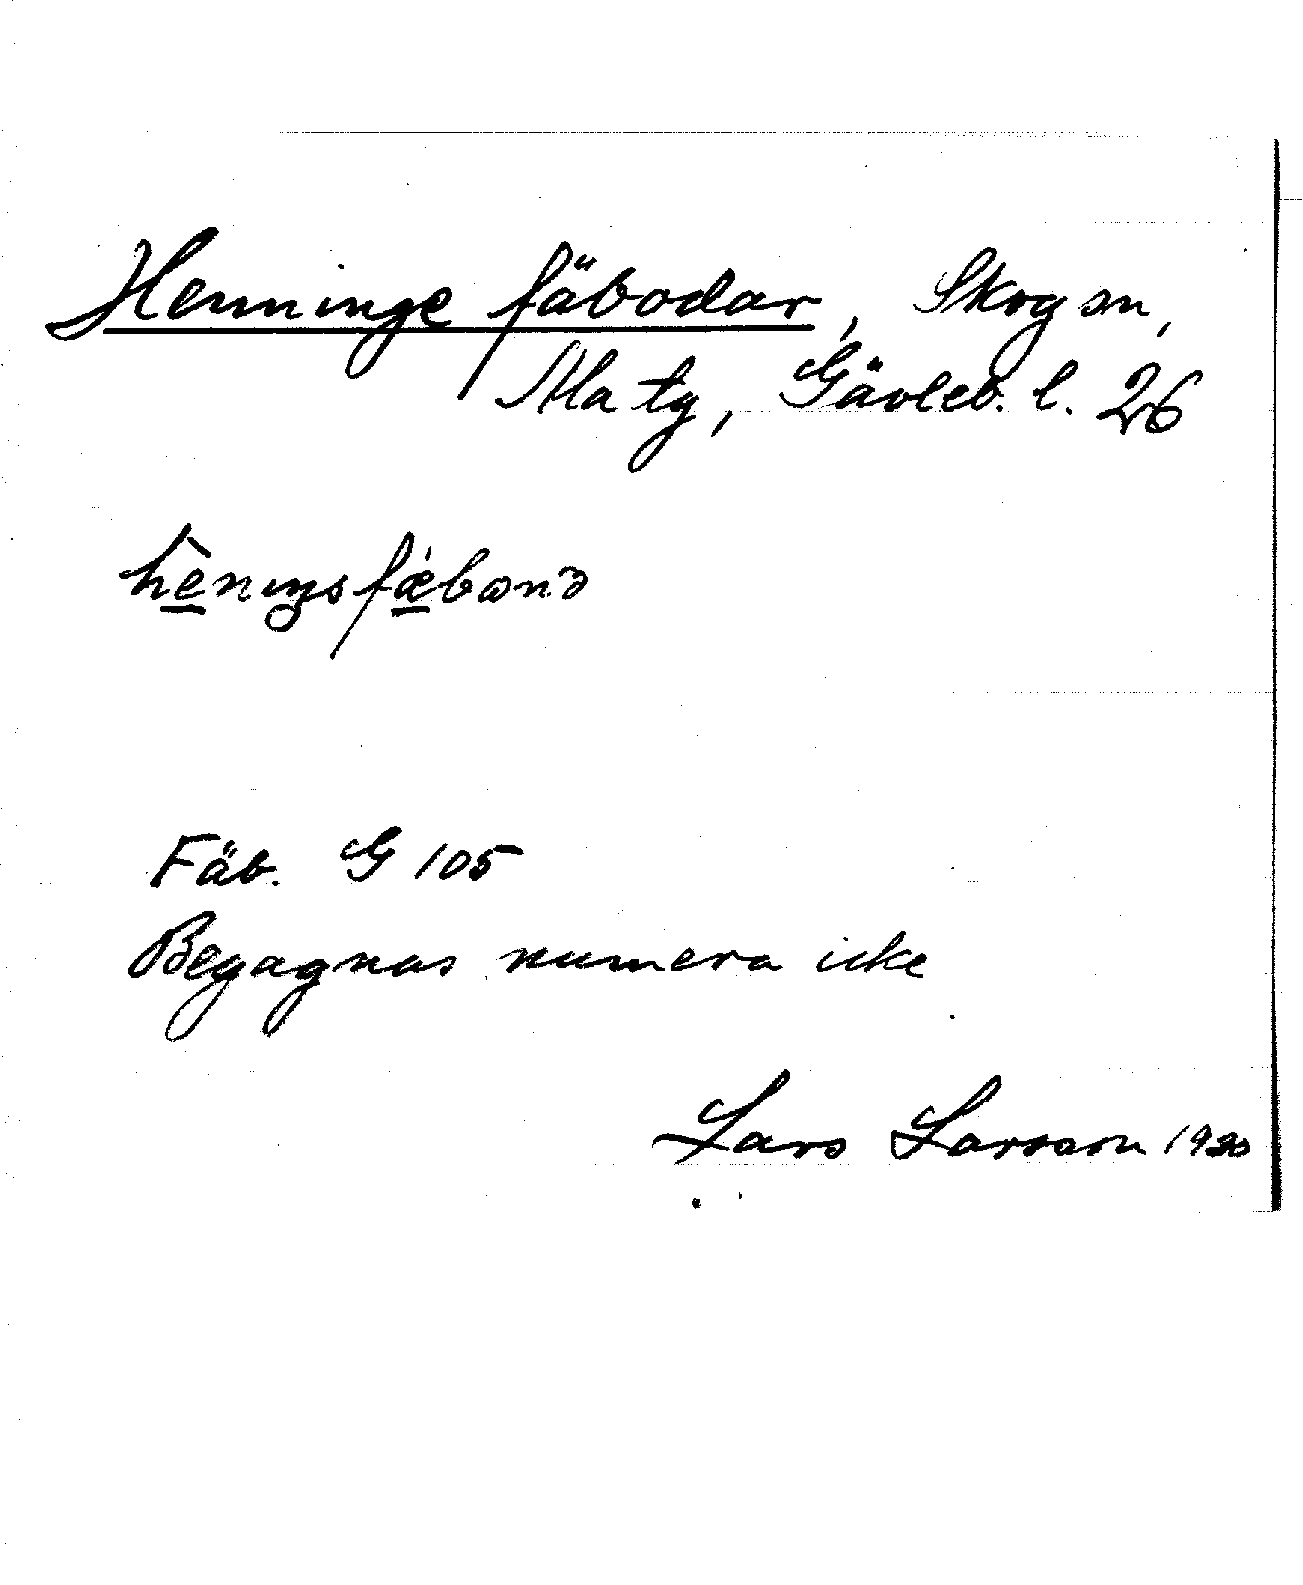 Henninge fäbodar, Skog sn,
Ala tg, Gävleb. l. 26
hèniŋsfæ̀bωnə
Fäb. G 105
Begagnas numera icke
Lars Larsson 1930